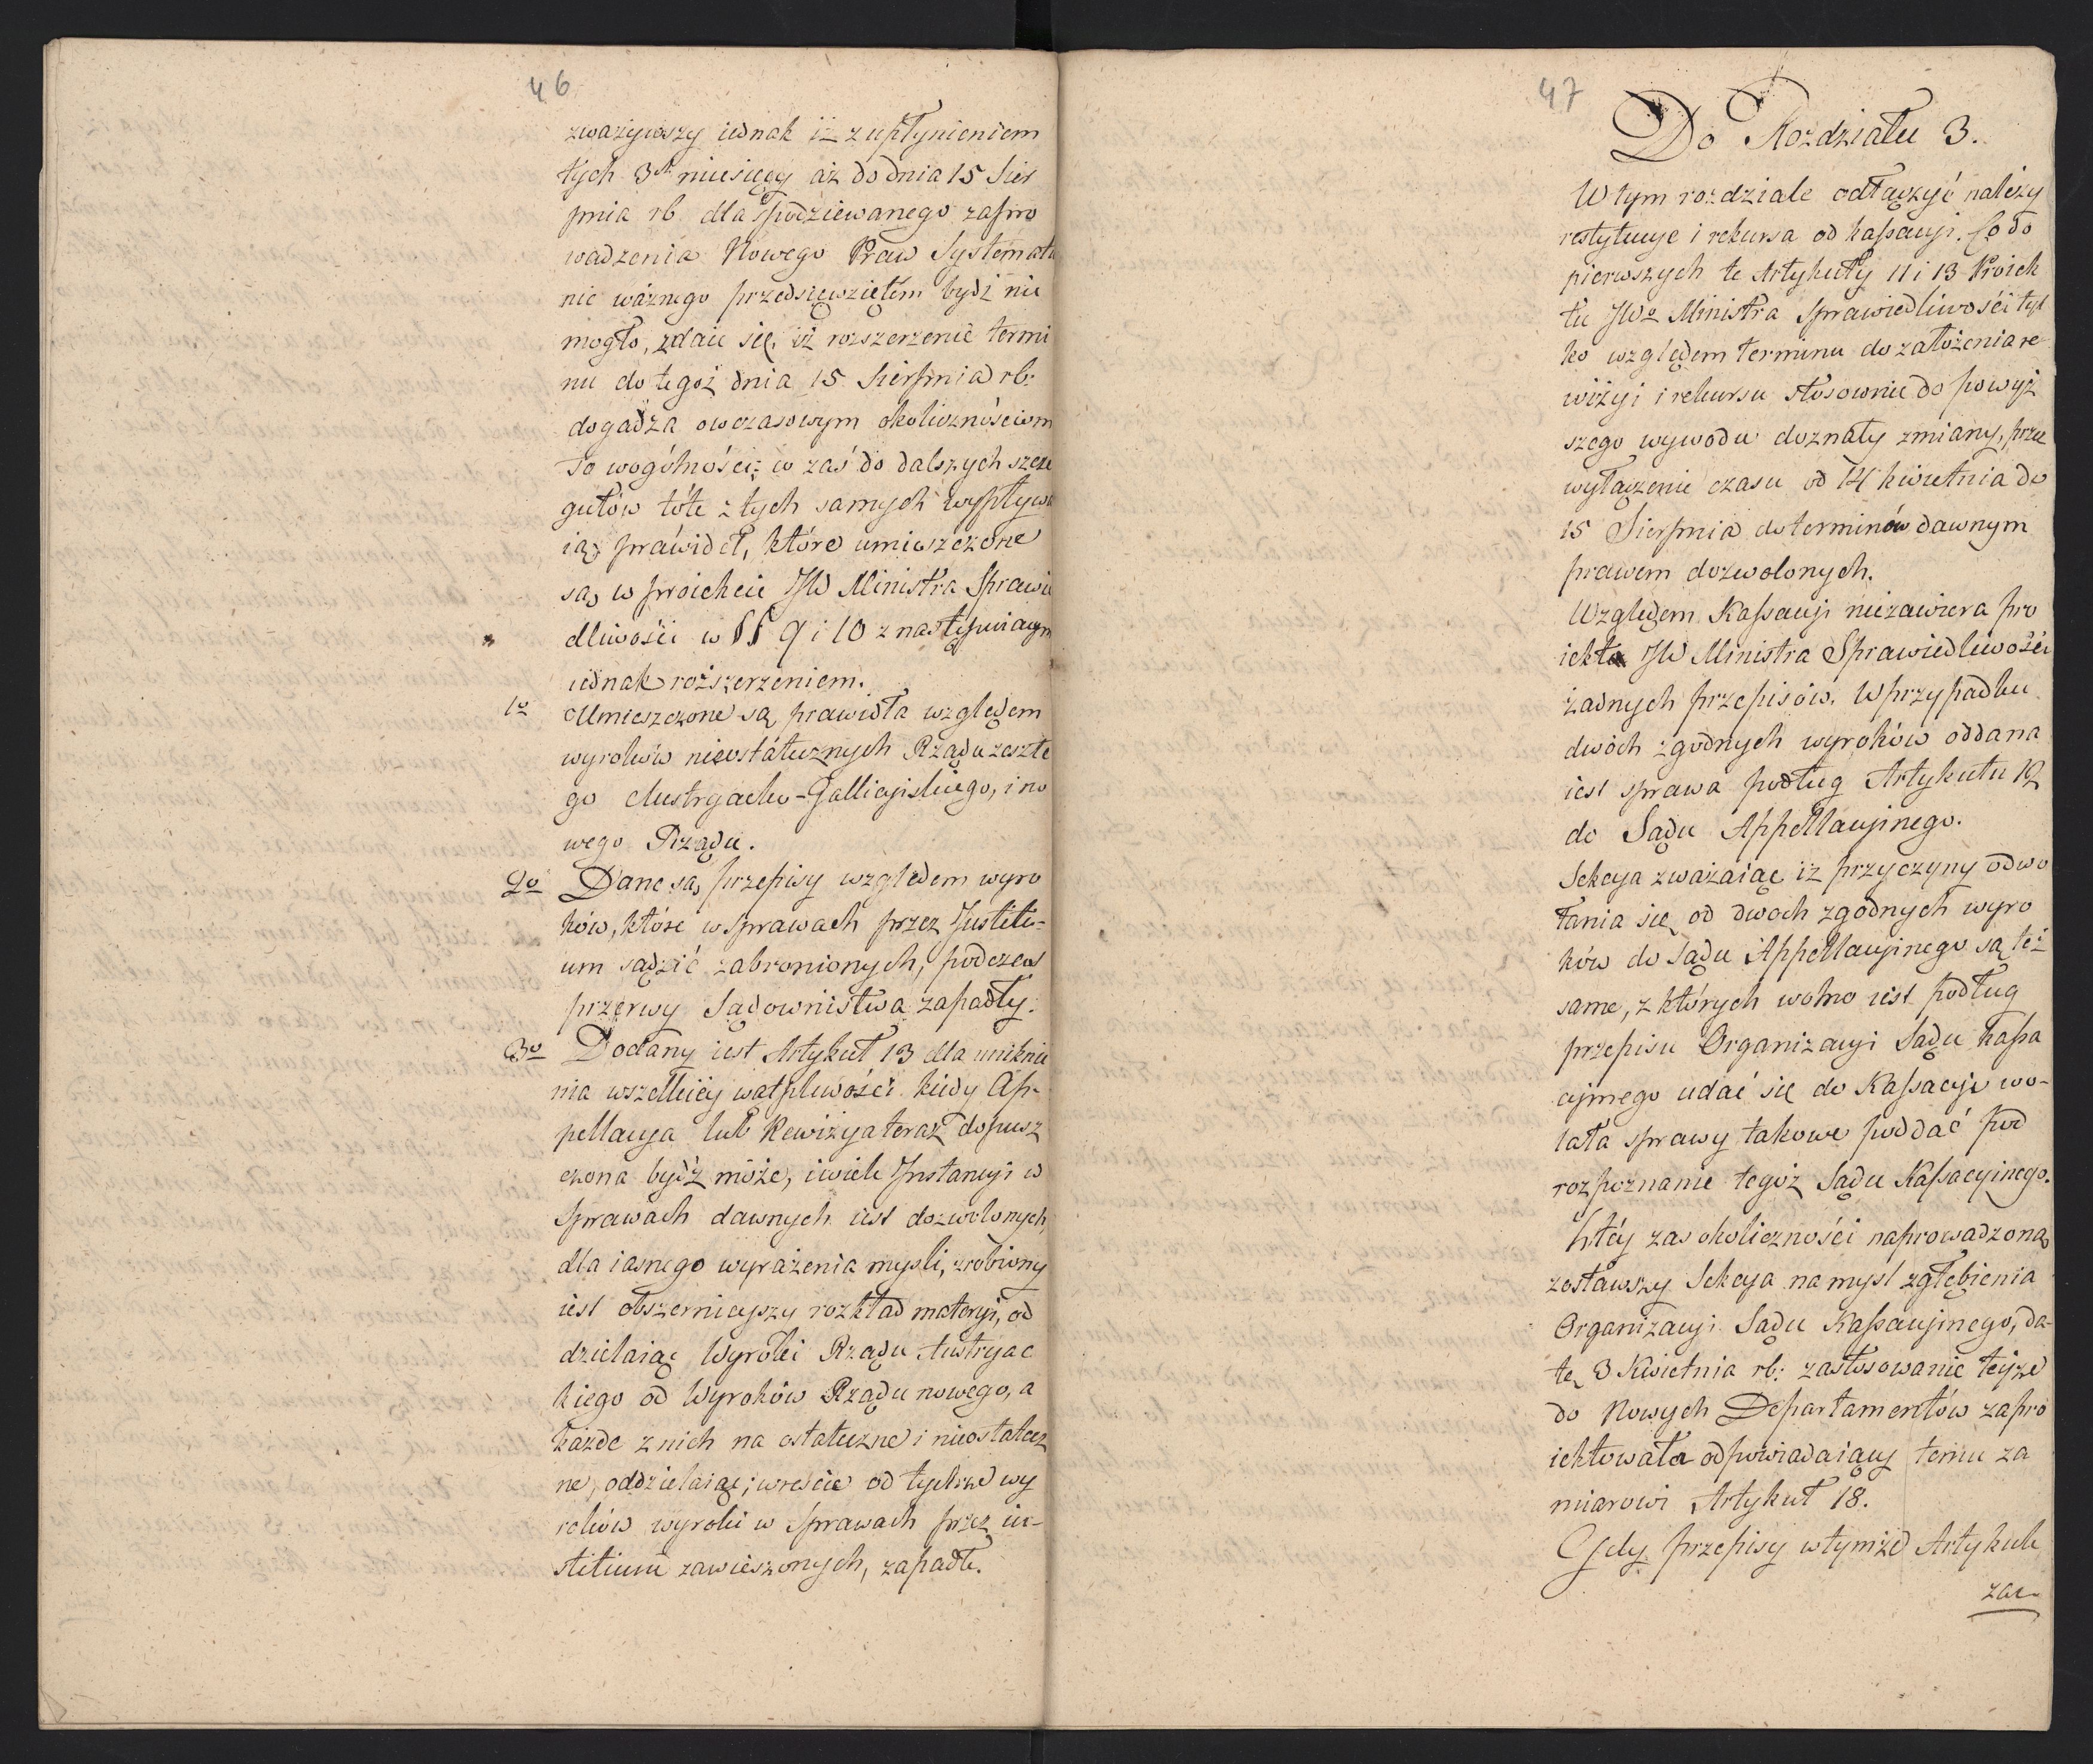 46
zważywszy iednak iż z upłynieniem
tych 3ch miesięcy aż do dnia 15 Sier
pnia rb. dla spodziewanego zapro
wadzenia Nowego Praw Systematu
nic ważnego przedsięwziętém bydź nie
mogło, zdaie się, iż rozszerzenie termi
nu do tegoż dnia 15 Sierpnia rb:
dogadza owczasowym okolicznościom
To wogólności; co zaś do dalszych szcze
gułów tóte z tych samych wypływa
ią prawideł, które umieszczone
są w proiekcie JW Ministra Sprawie
dliwości w §§ 9 i 10 z następuiącym
iednak rozszerzeniem.
1o Umieszczone są prawidła względem
wyroków nieostatecznych Rządu zeszłe
go Austryacko-Gallicyiskiego, i no
wego Rządu.
2o Dane są przepisy względem wyro
ków, które w sprawach przez Justiti-
um sądzić zabronionych, podczas
przerwy Sądownistwa zapadły.
3o Dodany iest Artykuł 13 dla uniknie
nia wszelkiéy wątpliwości kiedy Ap-
pellacya lub Rewizya teraz dopusz
czona bydź może, i wiele Instancyi w
Sprawach dawnych iest dozwolonych,
dla iasnego wyrażenia mysli, zrobiony
iest obszernieyszy rozkład materyi, od
dzielaiąc Wyroki Rządu Austryac
kiego od Wyroków Rządu nowego, a
każde z nich na ostateczne i nieostatecz
ne, oddzielaiąc; wreście od tychże wy
roków wyroki w Sprawach przez iu-
stitium zawieszonych, zapadłe.
47
Do Rozdziału 3.
W tym rozdziale odłączyć należy
restytucye i rekursa od kassacyi. Co do
pierwszych te Artykuły 11 i 13 Proiek
tu JWo Ministra Sprawiedliwości tyl
ko względem terminu do założenia re
wizyi i rekursu stosownie do powyż
szego wywodu doznały zmiany, przez
wyłączenie czasu od 14 kwietnia do
15 Sierpnia do terminów dawnym
prawem dozwolonych.
Względem Kassacyi niezawiera pro
iekta JW Ministra Sprawiedliwości
żadnych przepisów. W przypadku
dwóch zgodnych wyroków oddana
iest sprawa podług Artykułu 12
do Sądu Appellacyinego.
Sekcya zważaiąc iż przyczyny odwo
łania się od dwoch zgodnych wyro
ków do Sądu Appellacyinego są też
same, z których wolno iest podług
przepisu Organizacyi Sądu kassa
cyinego udać się do Kassacyi wo-
lała sprawy takowe poddać pod
rozpoznanie tegoż Sądu Kassacyinego.
Z téy zas okoliczności naprowadzoną
zostawszy Sekcya na mysl zgłębienia
Organizacyi Sądu Kassacyinego, da-
tę 3 Kwietnia rb: zastosowanie teyże
do Nowych Departamentów zapro
iektowała odpowiadaiący temu za
miarowi Artykuł 18.
Gdy przepisy wtymże Artykule
zae